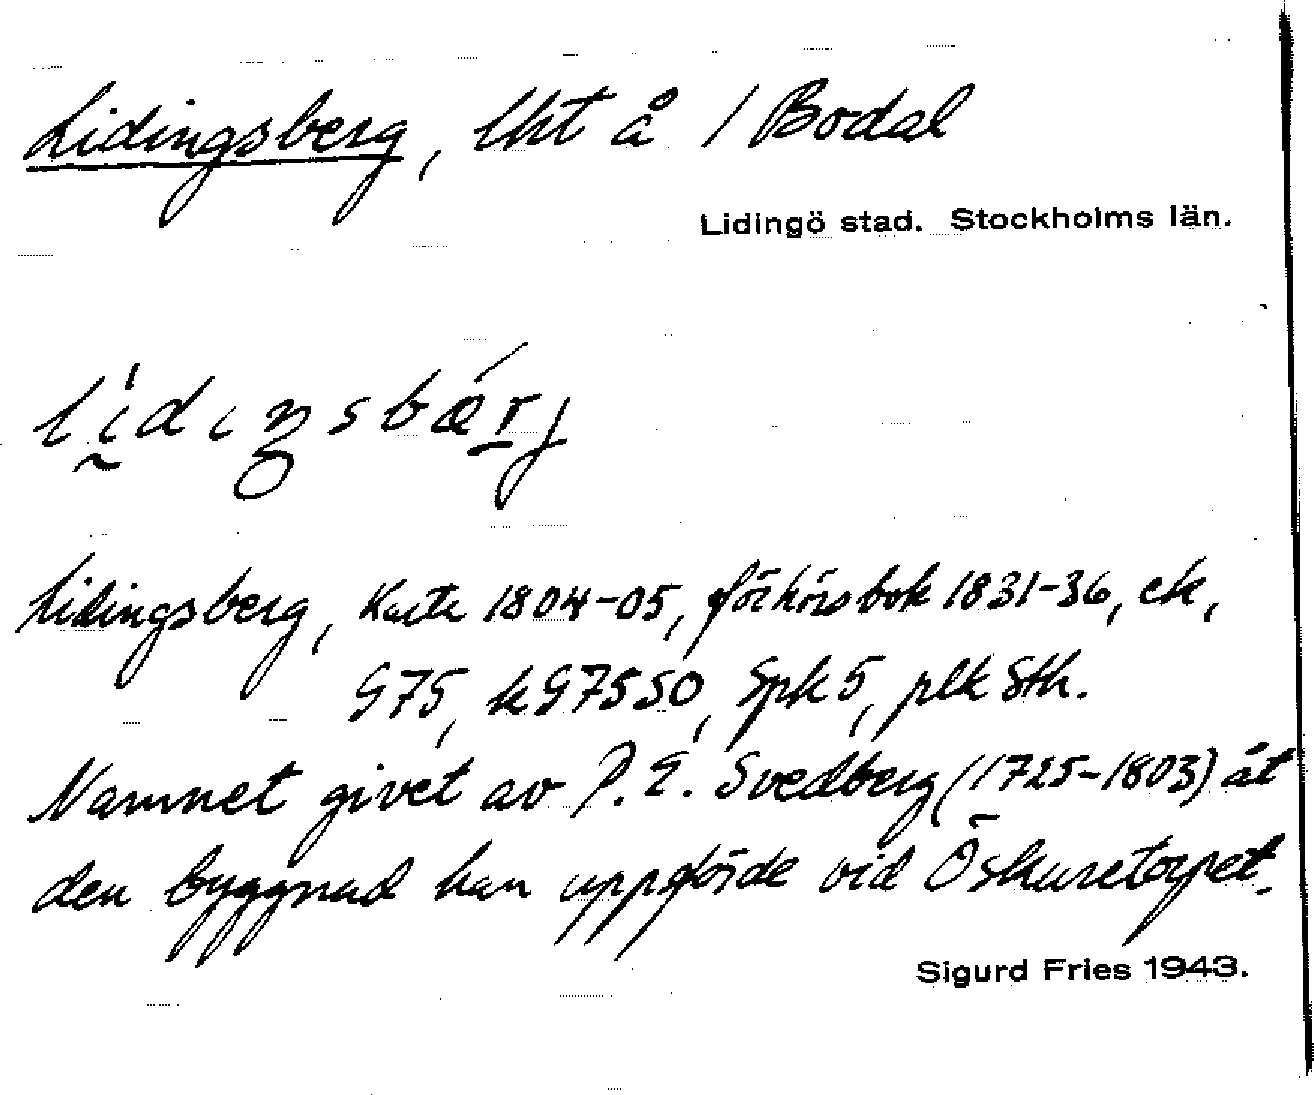 Lidingsberg, lht å / Bodal
Lidingö stad. Stockholms län.
lidiŋsbærj
Lidingsberg, Karta 1804-05, förhörsbok 1831-36, ek,
G75, kG75SO, Spk 5, plk Sth.
Namnet givet av P. E. Svedberg (1725-1803) åt
den byggnad han uppförde vid Öskaretorpet.
Sigurd Fries 1943.